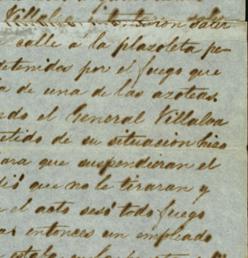 Villalva intentaron salir
calle a la plazoleta pe
detenidos por el fuego que
a de una de las azoteas.
do el General Villalva
etido de su situacion hizo
ara que suspendieran el
dió que no le tiraran y
n el acto sesó todo fuego
as entonces un empleado